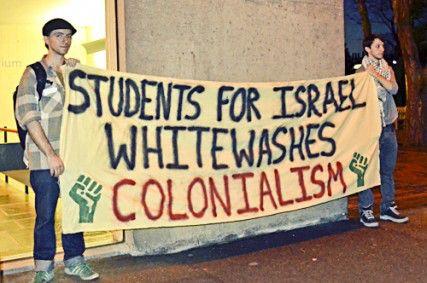 STUDENTS FOR ISRAEL
WHITEWASHES
COLONIALISM